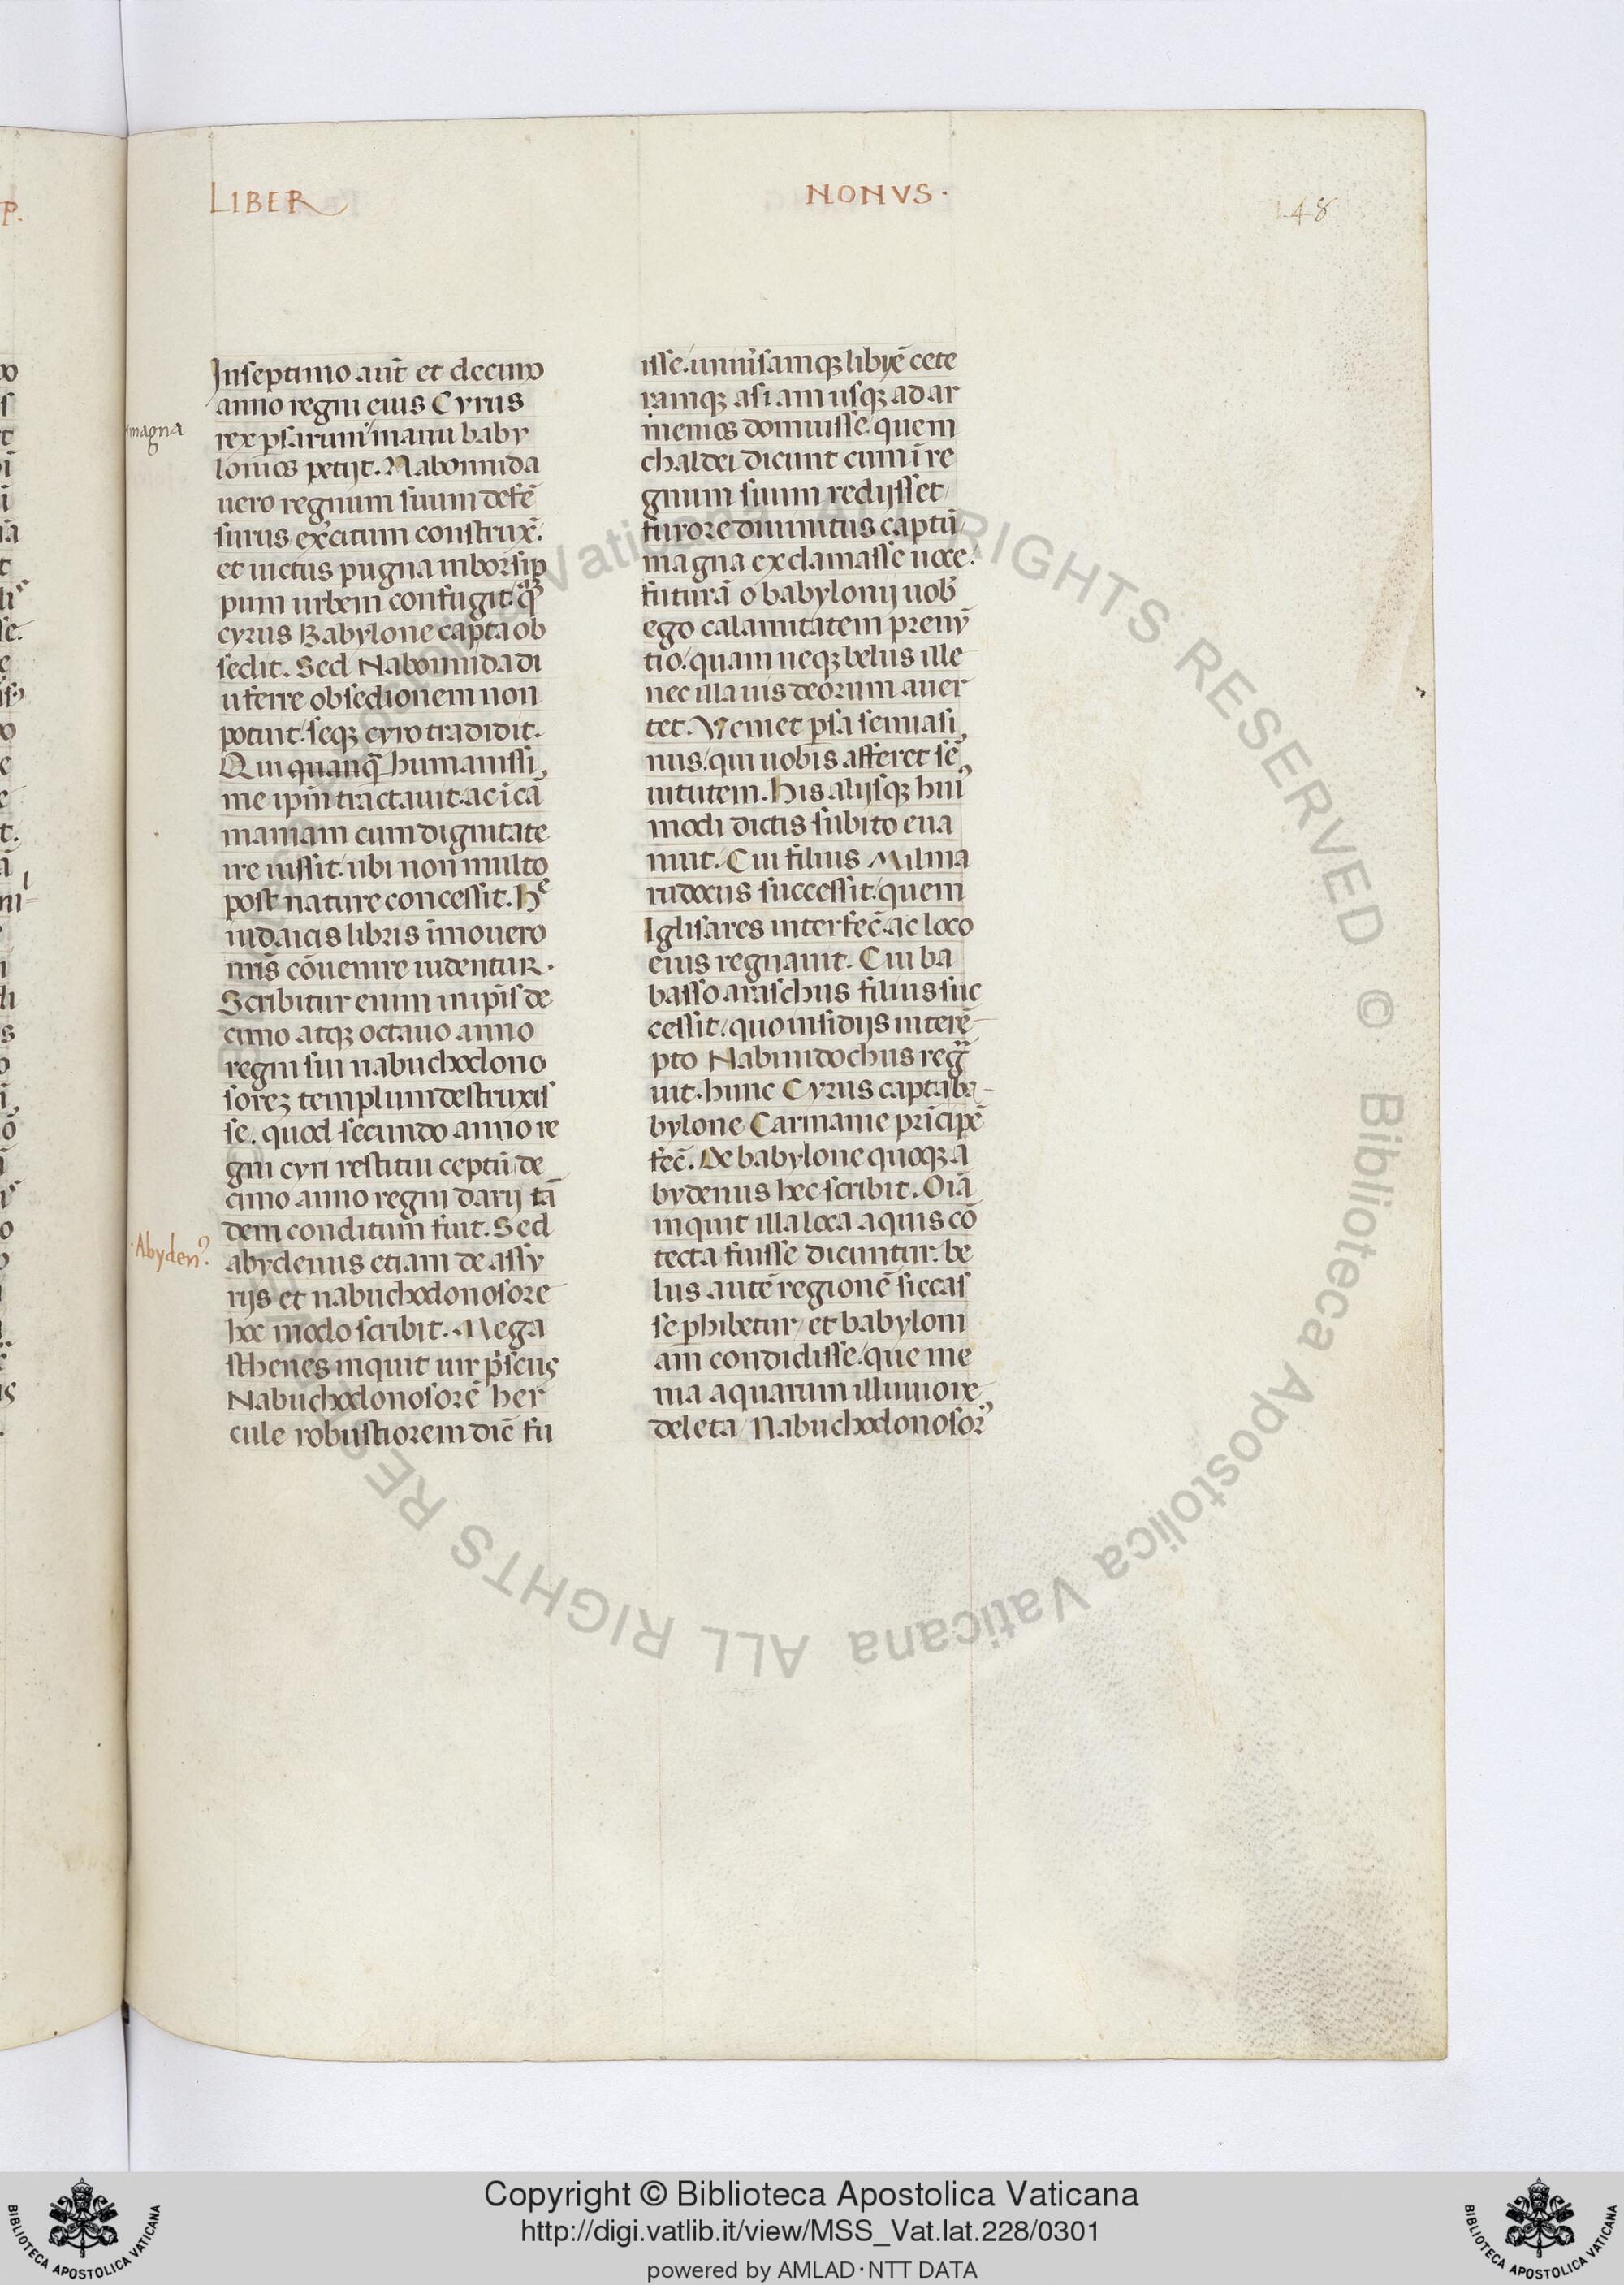 LIBER
NONVS.
148
Inseptimo aut̄ et decimo
anno regni eius Cyrus
magna
rex p̱sarum manu baby
lonios petijt. Nabonnida
uero regnum suum defē
surus exc̄itum construx̄.
et uictus pugna inborsip
pum urbem confugit. quē
cyrus Babylone capta ob
sedit. Sed Nabonnida di
u ferre obsedionem non
potuit. seqꝫ cyro tradidit.
Qui quanqꝫ humanissi
me ip̄m tractauit. ac ī cā
maniam cum dignitate
ire iussit. ubi non multo
post nature concessit. Hec
iudaicis libris īmo uero
nr̄is cōuenire uidentur.
Scribitur enim in ip̄is de
cimo atqꝫ octauo anno
regni sui nabuchodono
sorez templum destruxis
se. quod secundo anno re
gni cyri restitui ceptū. de
cimo anno regni darij tā
dem conditum fuit. Sed
·Abydenꝰ.
abydenus etiam de assy
rijs et nabuchodonosore
hoc modo scribit. Mega
sthenes inquit uir p̄scus
Nabuchodonosorē her
cule robustiorem dic̄ fu
isse. uniu̓samqꝫ libyē cete
ramqꝫ asiam usqꝫ ad ar
menios domuisse. quem
chaldei dicunt cum ī re
gnum suum redijsset
furore diuinitus captū
magna exclamasse uoce.
futurā o babylonij uob̄
ego calamitatem prenū
tio. quam neqꝫ belus ille
nec illa uis deorum auer
tet. Veniet p̱sa semiasi
nus. qui uobis afferet sē
uitutem. His alijsqꝫ huiꝰ
modi dictis subito eua
nuit. Cui filius Milma
rudocus successit. quem
Iglisares interfec̄. ac loco
eius regnauit. Cui ba
basso araschus filius suc
cessit. quo insidijs interē
pto Nabinidochus regā
uit. hunc Cyrus capta ba
bylone Carmanie prīcipē
fec̄. De babylone quoqꝫ a
bydenus hec scribit. Oīa
inquit illa loca aquis cō
tecta fuisse dicuntur. be
lus autē regionē siccas
se p̱hibetur, et babyloni
am condidisse. que me
nia aquarum illuuione
deleta Nabuchodonosorꝰ